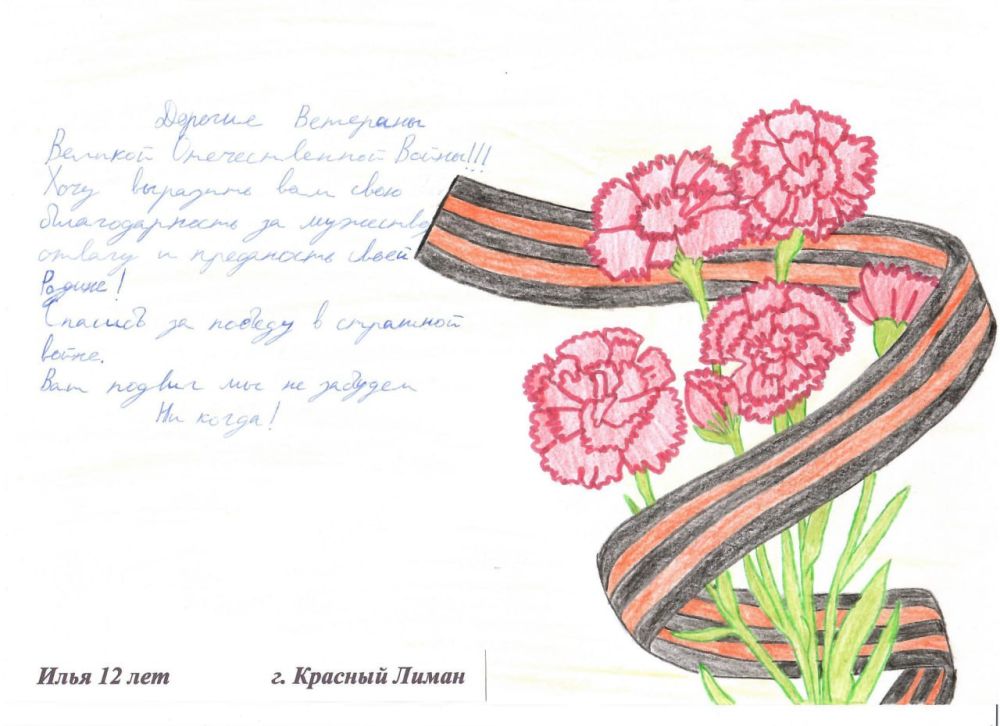 Дорогие Ветераны
Великой Отечественной Войны!!!
Хочу выразить вам свою
благодарность за мужество
отвагу и преданость своей
Родине!
Спасибо за победу в страшной
войне.
Ваш подвиг мы не забудем
Ни когда!
Илья 12 лет г. Красный Лиман